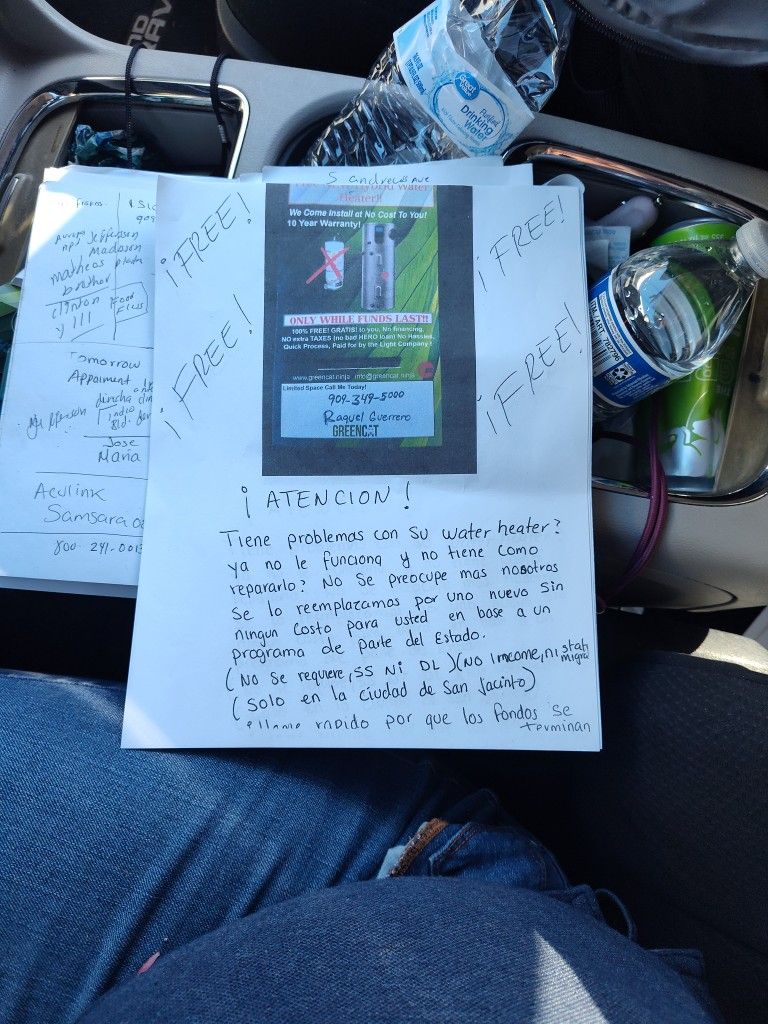 Great Value
Purified
Drinking Water
S andreas Ave
Hybrid Water
Heater!!
We Come Install at No Cost To You!
10 Year Warranty!
ONLY WHILE FUNDS LAST!!
100% FREE! GRATIS! to you, No financing,
NO extra TAXES (no bad HERO loan) No Hassles,
Quick Process, Paid for by the Light Company!
www.greencat.ninja info@greencat.ninja
Limited Space Call Me Today!
909-349-5000
Raquel Guerrero
GREENCAT
¡FREE!
¡FREE!
¡FREE!
¡FREE!
¡ATENCION!
Tiene problemas con su water heater?
ya no le funciona y no tiene como
repararlo? No se preocupe mas nosotras
se lo reemplazamos por uno nuevo sin
ningun costo para usted en base a un
programa de parte del Estado.
(No se requiere, SS Ni DL) (No Imcome, ni stat
migra
(Solo en la ciudad de San Jacinto)
llame rapido por que los fondos se
terminan
909
Jefferson
Madason
Matheos plata
brother
clinton
y 111
Food
Plus
Tomorrow
Appaiment
Indio
Bld.
Jose
Maria
Aculink
Samsara
800-241-001